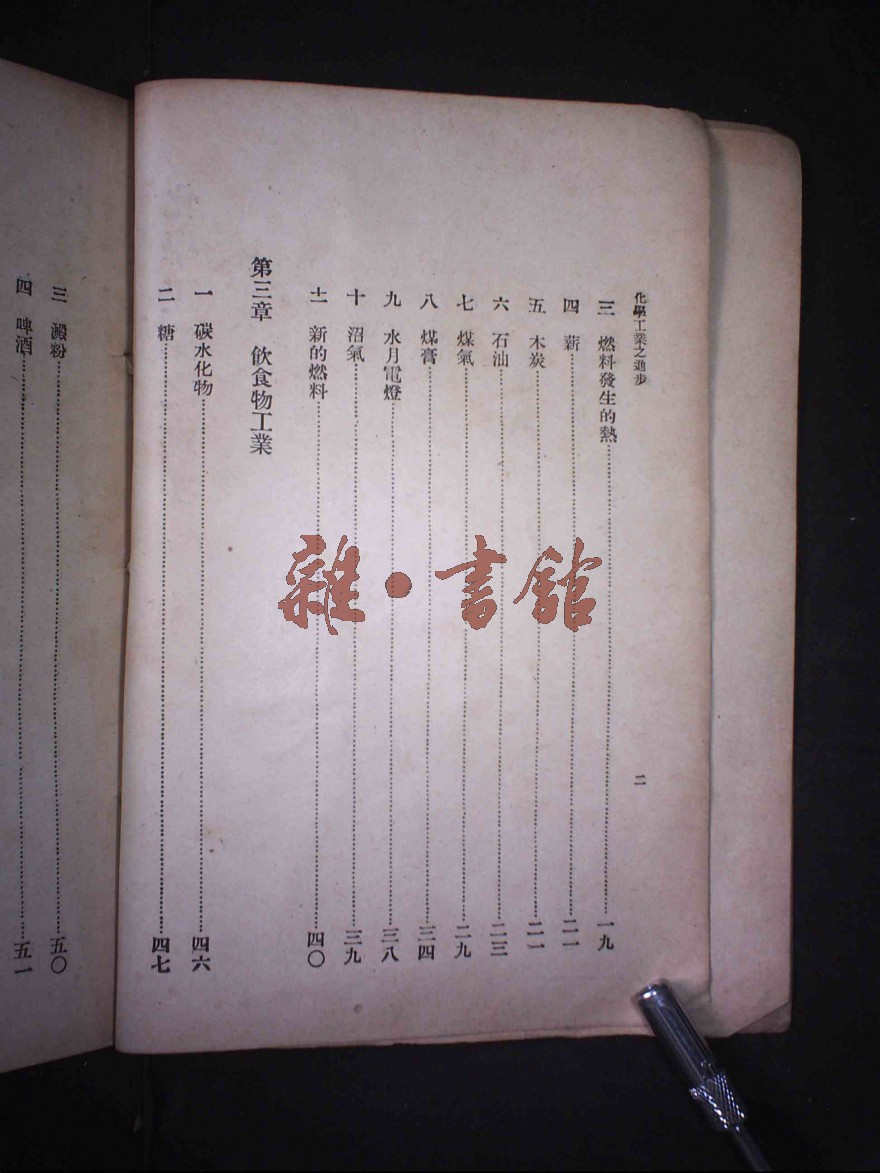 化學工業之進步
二
三 燃料發生的熱 一九
四 薪 二一
五 木炭 二一
六 石油 二三
七 煤氣 二九
八 煤膏 三四
九 水月電燈 三八
十 沼氣 三九
十一 新的燃料 四〇
第三章 飲食物工業
一 碳水化物 四六
二 糖 四七
三 澱粉 五〇
四 啤酒 五一
雜·書館